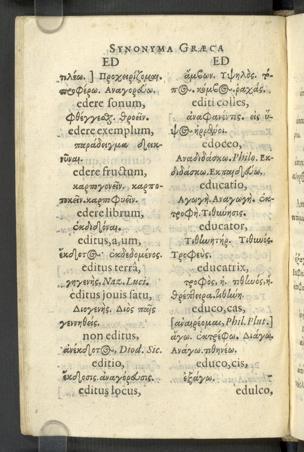 SYNONYMA GRÆCA
ED
πλέω. ] Προχειρίζομαι.
προφέρω. Αναγορεύω.
edere sonum,
φθέγγεσθαι. θροεῖν.
edere exemplum,
παράδειγμα
edere fructum,
καρπογονεῖν. καρπο-
edere librum,
ἐκδιδόναι.
editus, a, um,
ἔκδοτος. ἐκδεδομένος.
editus terra,
γηγενής. Naz. Luci.
editus jouis satu,
Διογενής. Διὸς παῖς
γεννηθείς.
non editus,
ἀνέκδοτος, Diod. Sic.
editio,
ἔκδοσις. ἀναγόρευσις.
editus locus,
ED
ἄμβων. Υψηλός.
editi colles,
edoceo,
Αναδιδάσκω. Philo. Εκ-
διδάσκω. Εκπαιδεύω.
educatio,
Αγωγή. Αναγωγή. ἐκ-
τροφή. Τιθήνησις.
educator,
Τιθηνητήρ. Τιθηνός.
Τροφεύς.
educatrix,
τροφός, ἡ. τιθηνός, ἡ.
θρέπτειρα.
educo, cas,
[ἀναιρέομαι, Phil. Plut.]
ἄγω. ἐκτρέφω. Διάγω.
Ανάγω. τιθηνέω.
educo, cis,
ἐξάγω.
edulco,